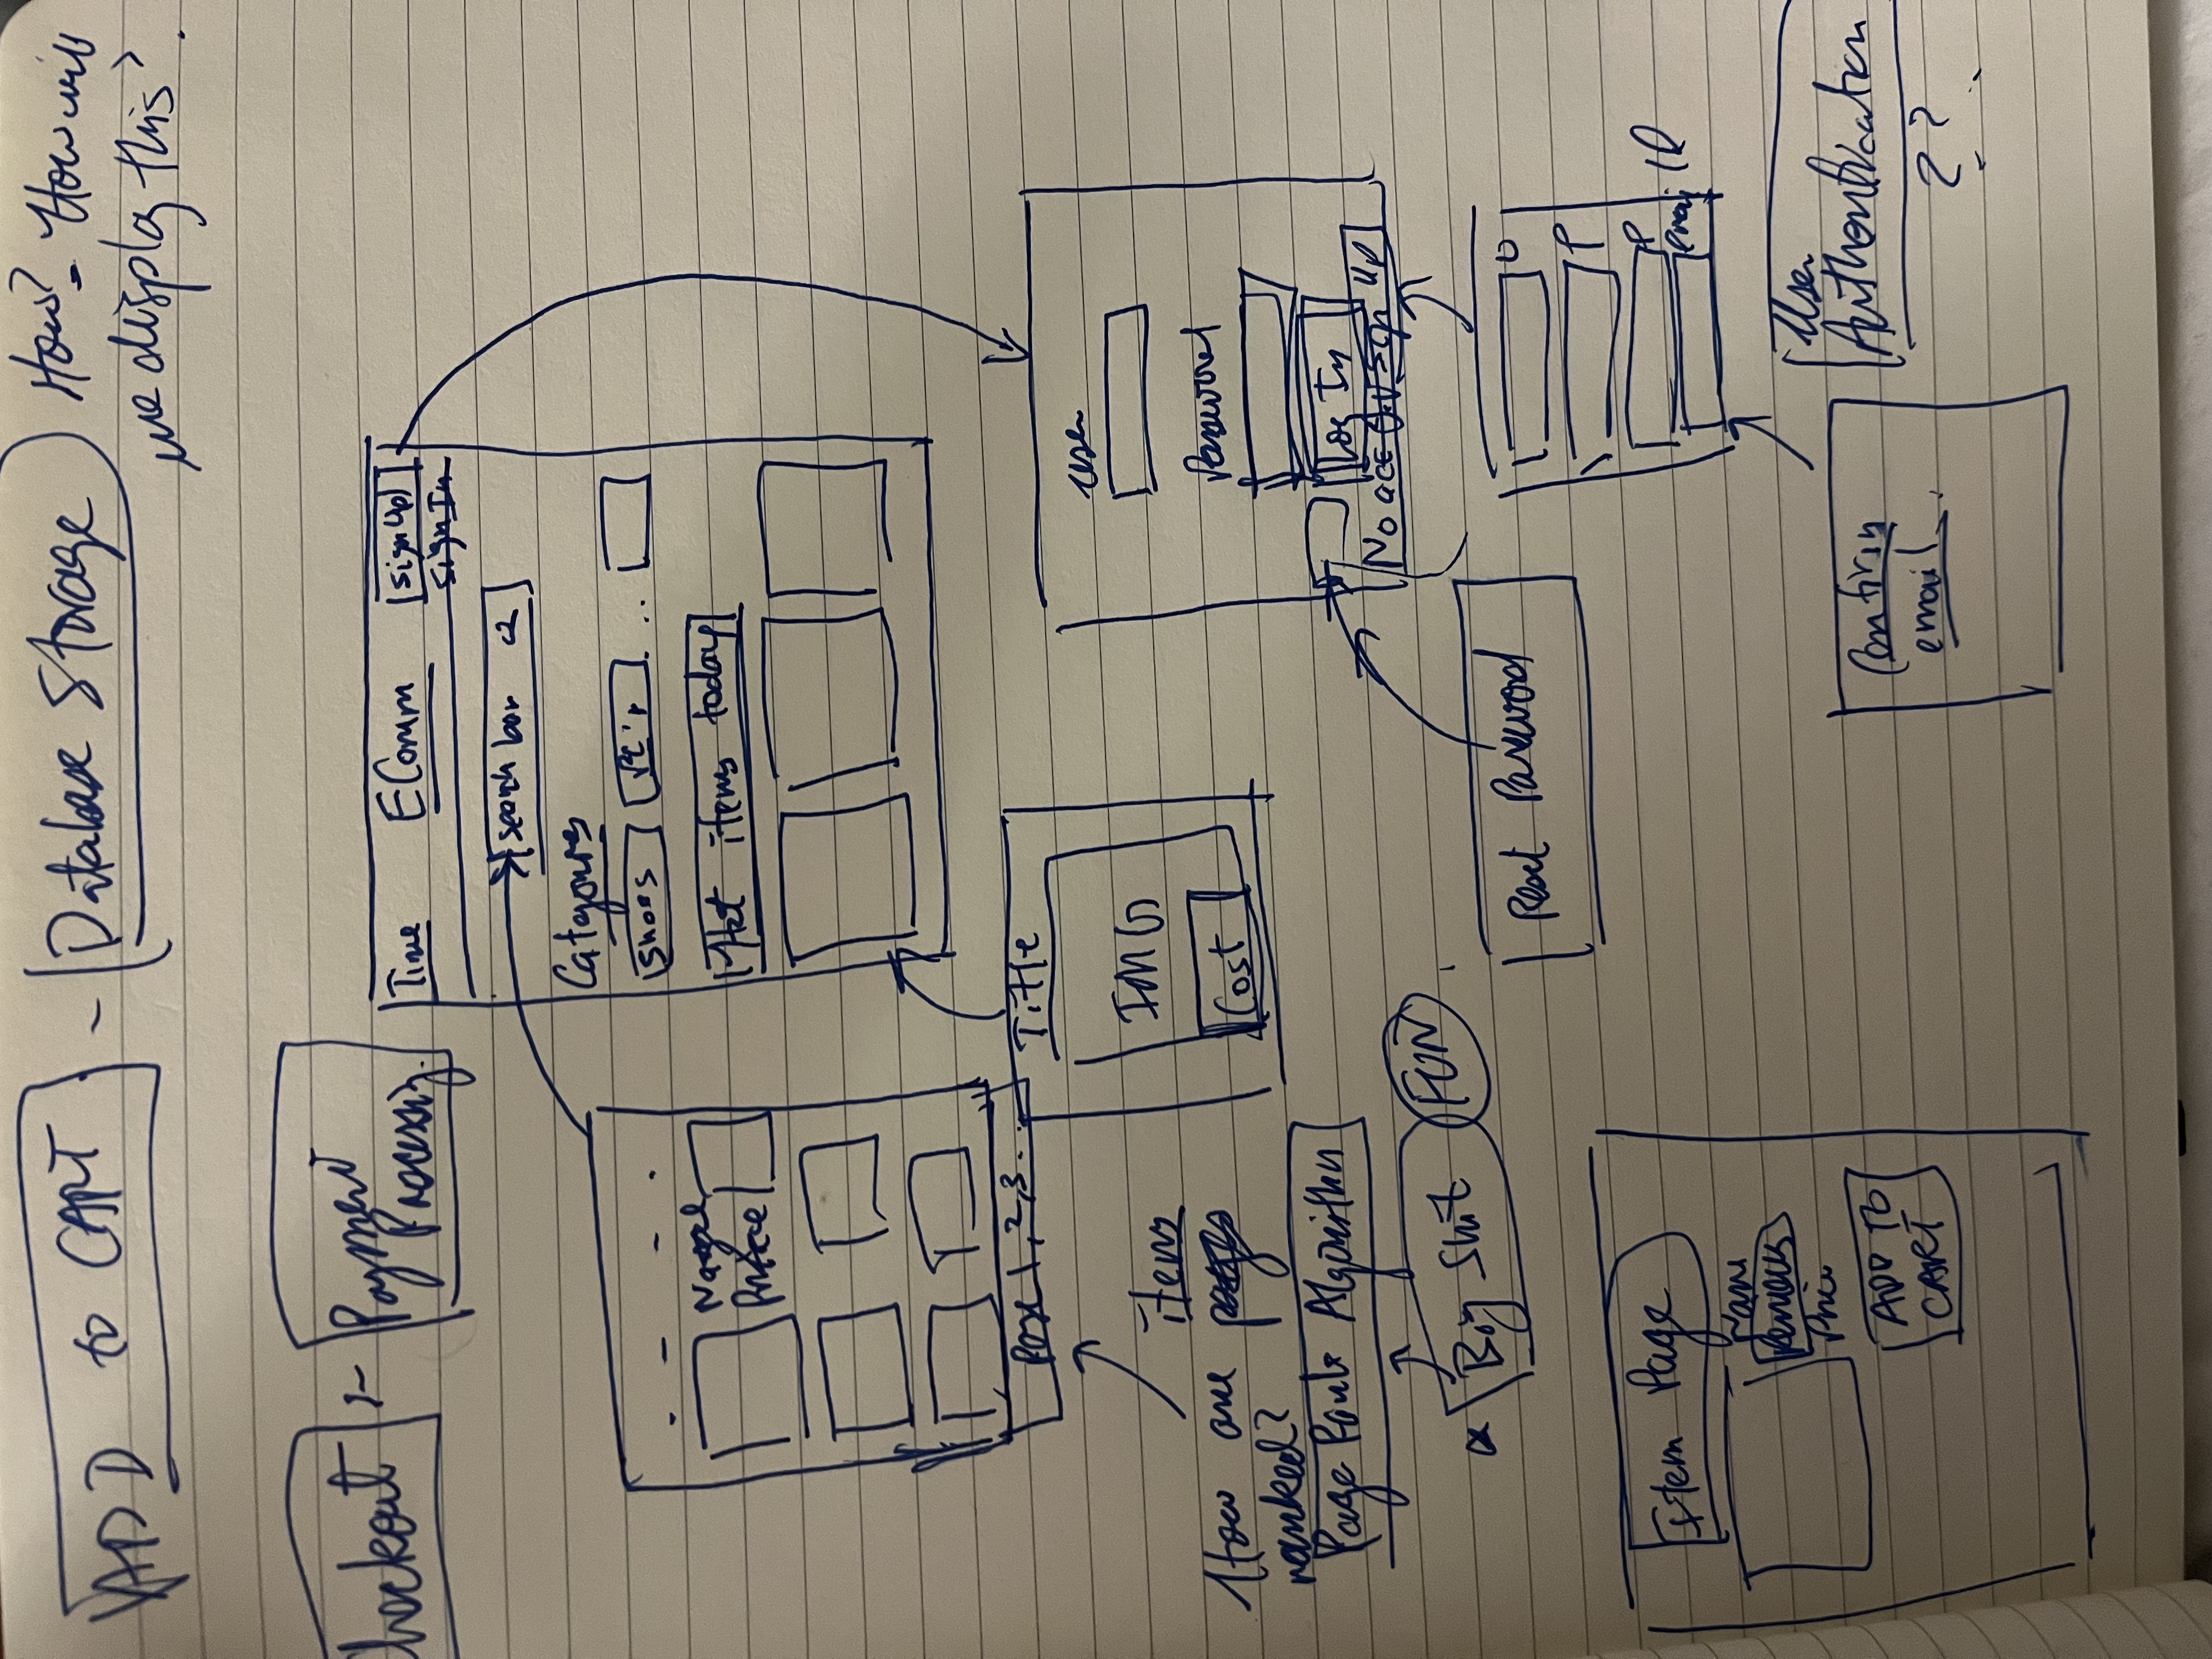 ADD to CART - Database Storage How? How will
we display this?
Checkout :- Payment
Processing.
Time EComm Sign Up
Sign In
search bar
Categoures
Shoes ...
Hot items today
Name
Price
Page 1, 2, 3...
Title
IMG
Cost
How are items
ranked?
Page Rank Algorithm
Big Shit FUN
User
Password
Log In
No acc Sign Up
Reset Password
U
P
P
email ID
Item Page
Name
Reviews
Price
ADD TO
CART
Confirm
email.
User
Authentication
??